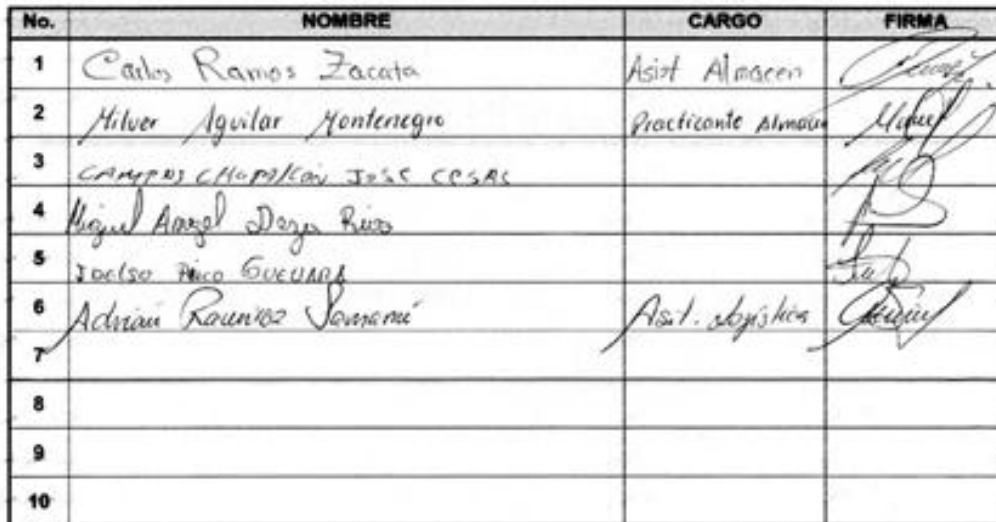 No. NOMBRE CARGO FIRMA
1 Carlos Ramos Zacata Asist Almacen
2 Milver Aguilar Montenegro Practicante Almacen
3 CAMPOS JOSE CESAR
4 Miguel Angel Daza Rios
5 GUEVARA
6 Adrian Ramirez Asit. Logistica
7
8
9
10